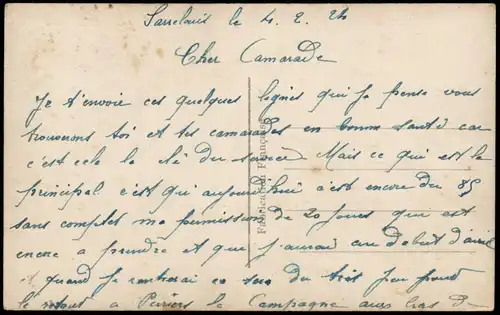 Sarrelouis le 4. 2. 24
Cher Camarade
Je t'envoie ces quelques lignes qui je pense vous
trouverons toi et tes camarades en bonne santé car
c'est cele la clé du service Mais ce qui est le
principal c'est qui aujourd'hui c'est encore du 85
sans compter ma permission de 20 jours qui est
encore a prendre et que j'aurai au début d'avril
et quand je rentrerai ce sera du très peu pour
le retour a la Campagne
Fabrication Française